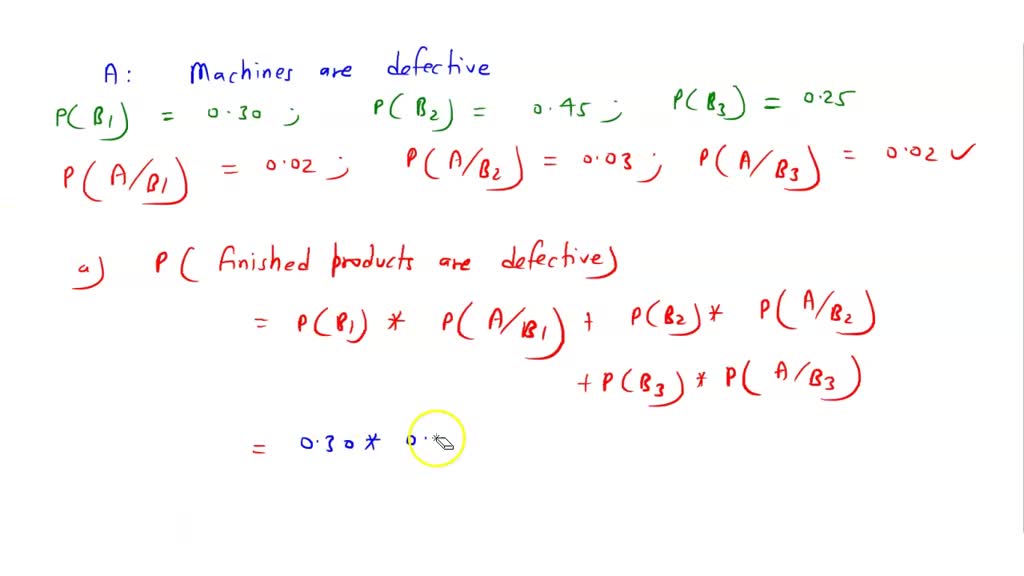 A: Machines are defective
P(B1) = 0.30 ; P(B2) = 0.45 ; P(B3) = 0.25
P(A/B1) = 0.02 ; P(A/B2) = 0.03 ; P(A/B3) = 0.02 ✓
a) P( finished products are defective)
= P(B1) * P(A/B1) + P(B2) * P(A/B2)
+ P(B3) * P(A/B3)
= 0.30 * 0.